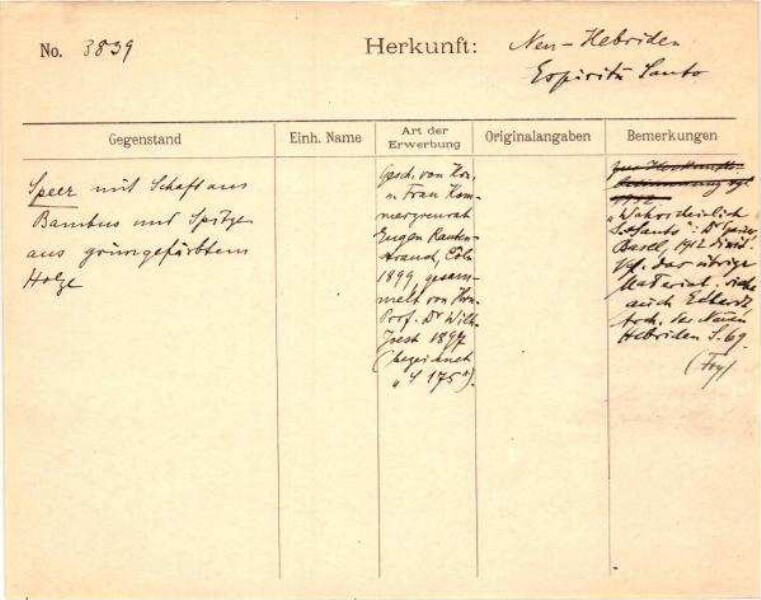 No. 3839
Herkunft: Neu-Hebriden
Espiritu Santo
Gegenstand
Einh. Name
Art der
Erwerbung
Originalangaben
Bemerkungen
Speer mit Schaft aus
Bambus und Spitze
aus grüngefärbtem
Holze
Gesch. von Hrn.
u. Frau Kom-
merzienrat
Eugen Rauten-
strauch, Cöln
1899, gesam-
melt von Hrn.
Prof. Dr Wilh.
Joest 1897
(bezeichnet
"S 175").
"Wahrscheinlich
S. Santo": Dr Speiser,
Basel, 1912
Vgl. das übrige
Material, siehe
auch
der Neuen
Hebriden S. 69.
(Foy)